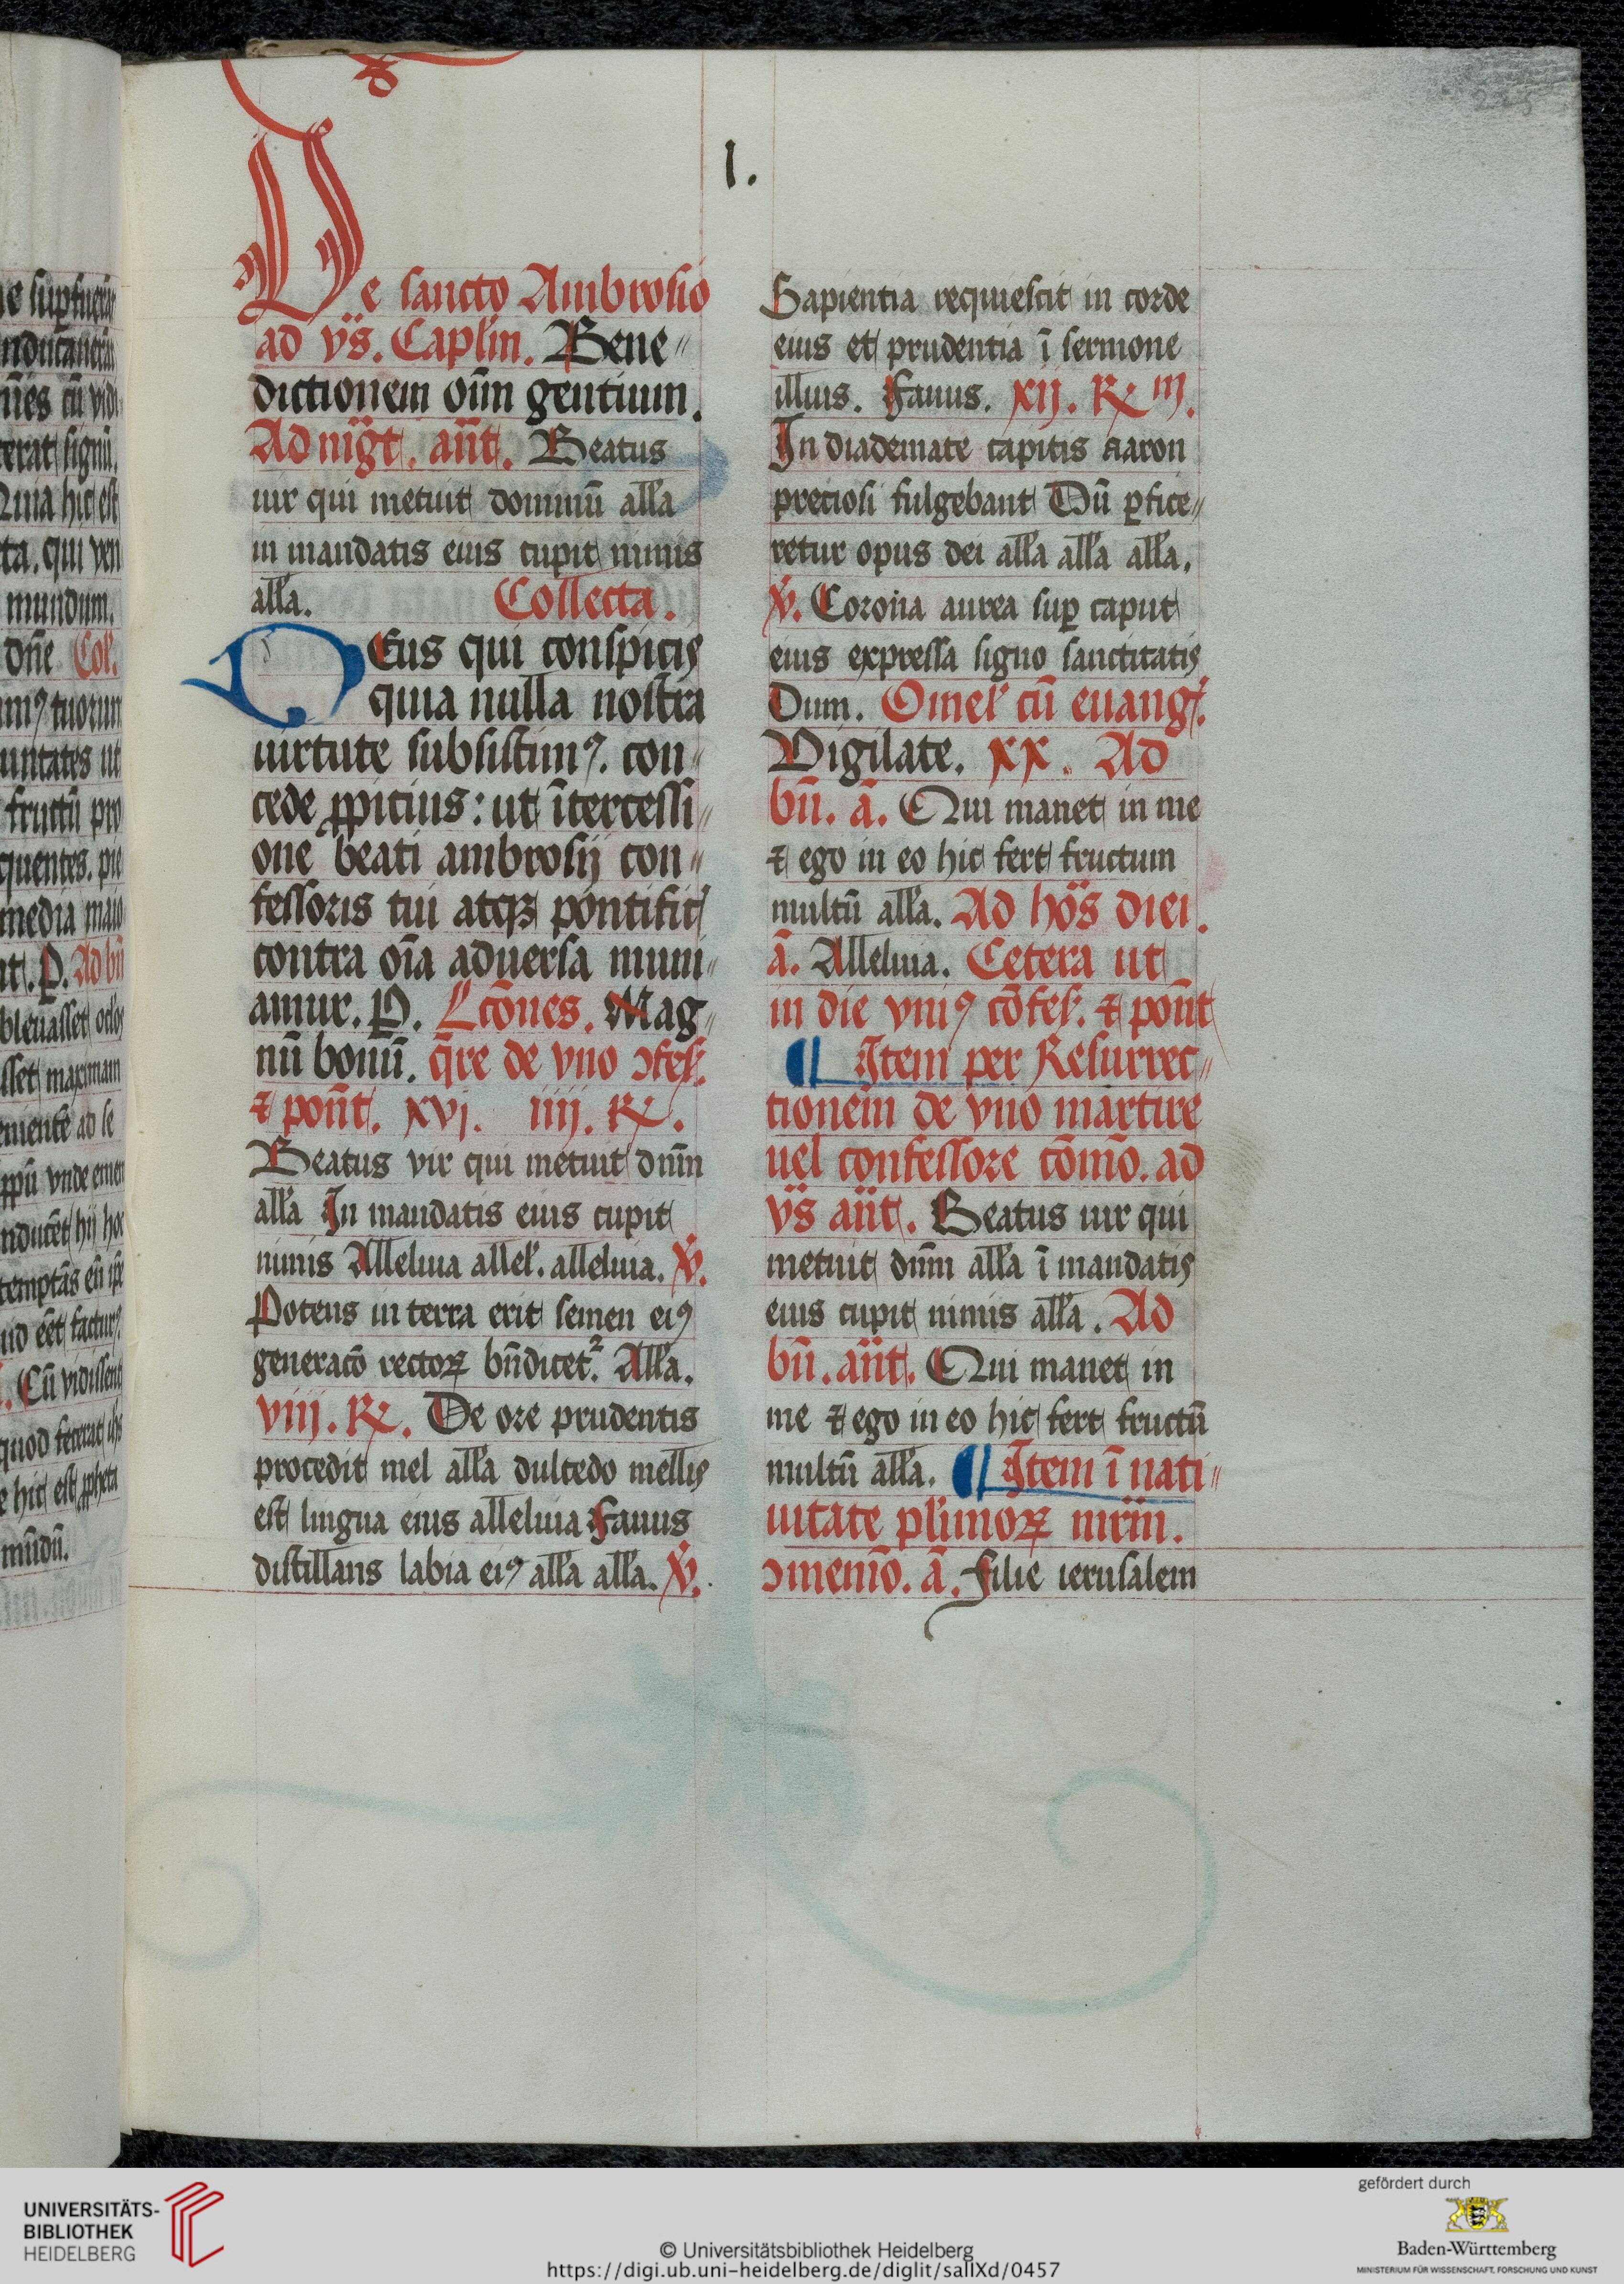 I.
De sancto Ambrosio
ad vs̈. Caplin̄. Bene„
dictionem oīm gentium.
Ad nig̈t. an̈t. Beatus
uir qui metuit dominū all'a
in mandatis eius cupit nimis
all'a. Collecta.
DEus qui conspicis
quia nulla nostra
uirtute subsistimꝰ. con„
cede ꝓpicius: ut ītercessi„
one beati ambrosij con„
fessoris tui atqꝫ pontific̄
contra oīa aduersa muni„
amur. P. Lcōnes. Mag„
nū bonū. q̄re de vno ɔfes.
⁊ pon̄t. xvj. iiij. R.
Beatus vir qui metuit dnm̄
all'a In mandatis eius cupit
nimis Alleluia allel'. alleluia. V.
Potens in terra erit semen eiꝰ
generacō rectoꝝ bn̄dicet᷑. All'a.
viij. R. De ore prudentis
procedit mel all'a dulcedo mellis
est lingua eius alleluia Fauus
distillans labia eiꝰ all'a all'a. V.
Sapientia requiescit in corde
eius et prudentia ī sermone
illius. Fauus. xij. R m.
In diademate capitis aaron
preciosi fulgebant Dū ꝑfice„
retur opus dei all'a all'a all'a.
V. Corona aurea suꝑ caput
eius expressa signo sanctitatis
Dum. Omel' cū euang'.
Vigilate. xx. Ad
bn̄. ā. Qui manet in me
⁊ ego in eo hic fert fructum
multū all'a. Ad hös diei.
ā. Alleluia. Cetera ut
in die vniꝰ cōfes. ⁊ pon̄t
¶ Item per Resurrec„
tionem de vno martire
uel confessore cōmō. ad
vs̈ an̈t. Beatus uir qui
metuit dnm̄ all'a ī mandatis
eius cupit nimis all'a. Ad
bn̄. an̈t. Qui manet in
me ⁊ ego in eo hic fert fructū
multū all'a. ¶ Item ī nati„
uitate pl'imoꝝ mr̄m.
ɔmemō. ā. Filie ierusalem
UNIVERSITÄTS-
BIBLIOTHEK
HEIDELBERG
© Universitätsbibliothek Heidelberg
https://digi.ub.uni-heidelberg.de/diglit/salIXd/0457
gefördert durch
Baden-Württemberg
MINISTERIUM FÜR WISSENSCHAFT, FORSCHUNG UND KUNST